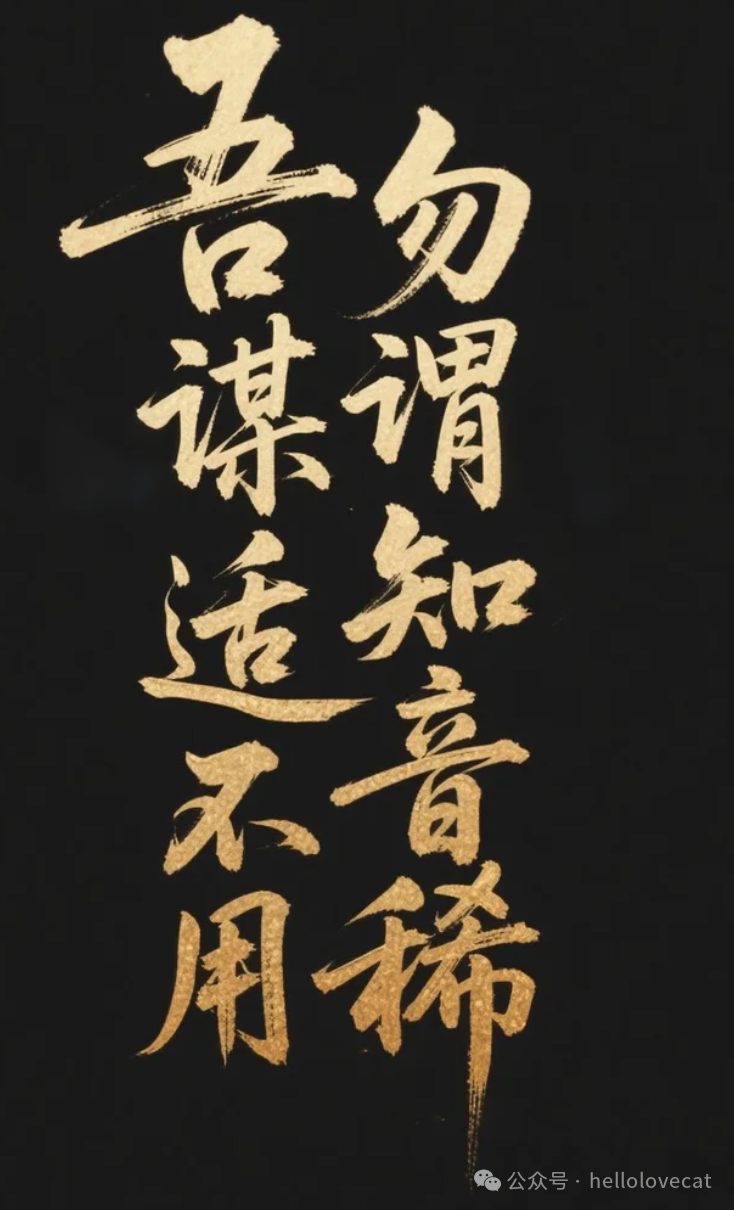 吾谋适不用
勿谓知音稀
公众号·hellolovecat